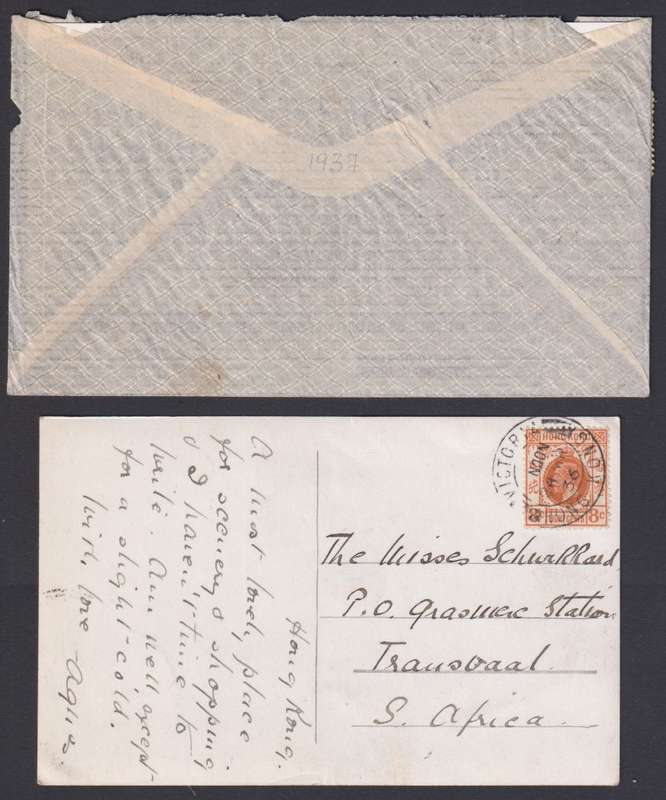 1937
Hong Kong.
A most lovely place
for scenery & shopping
& I haven't time to
write. Am well except
for a slight cold.
With love Agnes.
VICTORIA
HONG KONG
NOON
36
HONG KONG
8c
The Misses Schurkkard
P.O. Grasmere Station
Transvaal
S. Africa